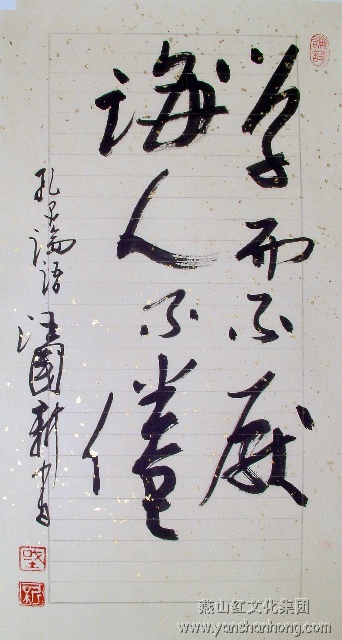 学而不厭
诲人不倦
孔子論语
汪國新书
燕山红文化集团
www.yanshanhong.com